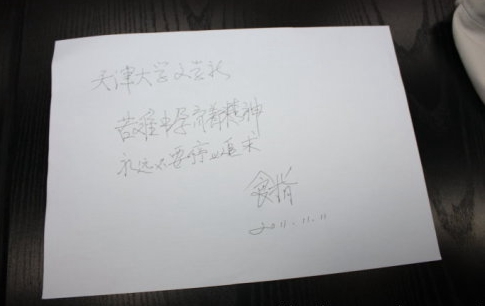 天津大学文学社
苦难中孕育着精神
永远不要停止追求
食指
2011.11.11